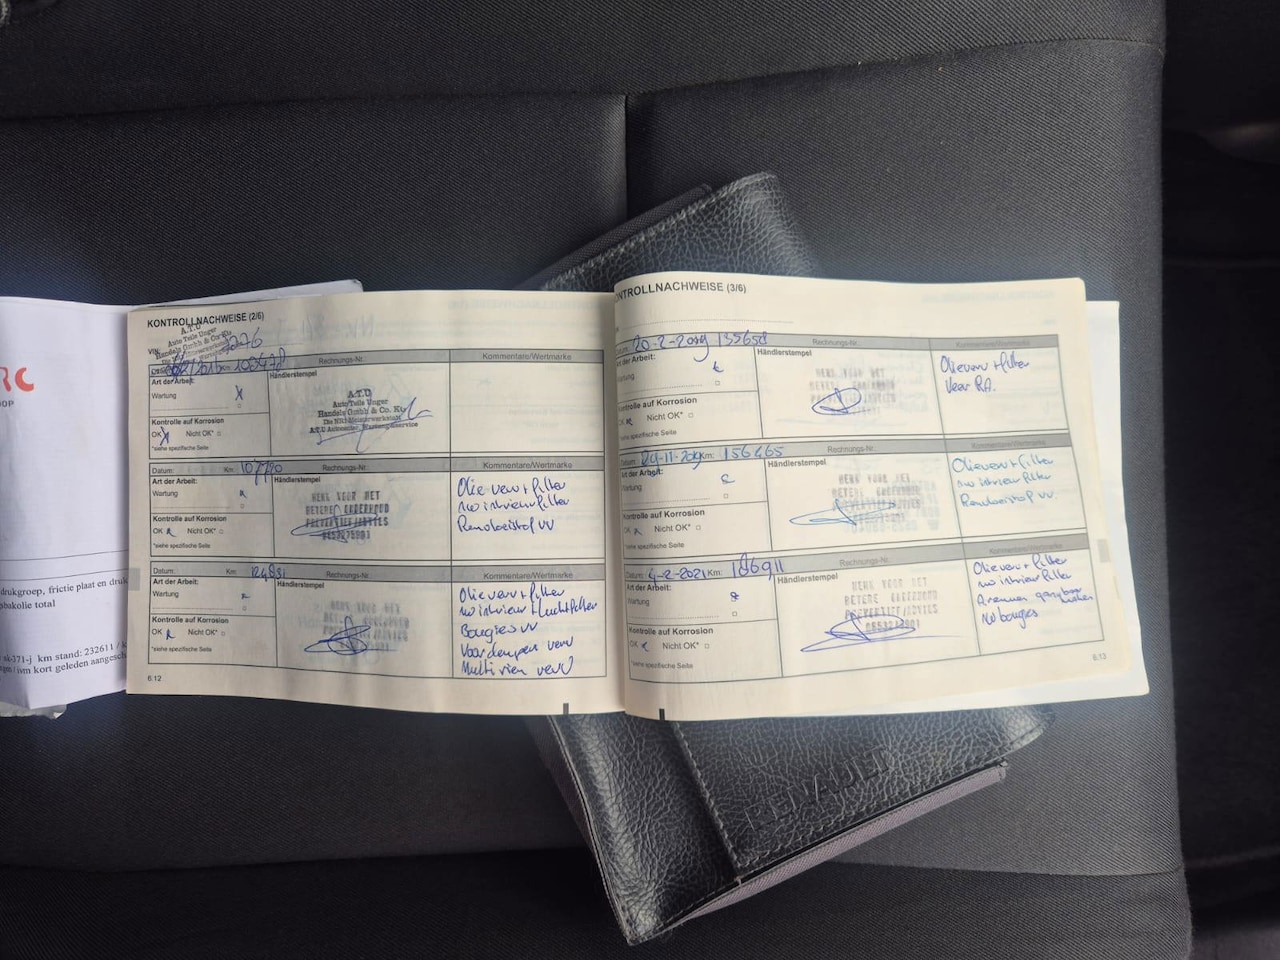 RC
OP
drukgroep, frictie plaat en druk
bakolie total
sk-371-j km stand: 232611 / k
kort geleden aangesch
KONTROLLNACHWEISE (2/6)
VIN:
A.T.U
Auto Teile Unger
Handels GmbH & Co. KG
Km 103478
Rechnungs-Nr.
Kommentare/Wertmarke
Art der Arbeit:
Händlerstempel
Wartung
X
A.T.U
Auto Teile Unger
Handels GmbH & Co. KG
Die NR1 Meisterwerkstatt
Kontrolle auf Korrosion
OK X Nicht OK*
*siehe spezifische Seite
Datum: Km: 107790 Rechnungs-Nr. Kommentare/Wertmarke
Art der Arbeit:
Händlerstempel
Wartung x
MERK VOOR MET
BETERE ONDERHOUD
PREVENTIEF/ADVIES
Olie verv + filter
nw interieur filter
Remvloeistof vv
Kontrolle auf Korrosion
OK x Nicht OK*
*siehe spezifische Seite
Datum: Km: 124831 Rechnungs-Nr. Kommentare/Wertmarke
Art der Arbeit:
Händlerstempel
Wartung x
Olie verv + filter
nw interieur + luchtfilter
Bougies vv
Voordempers verv
Multi riem verv
Kontrolle auf Korrosion
OK x Nicht OK*
*siehe spezifische Seite
6.12
ONTROLLNACHWEISE (3/6)
Datum: 20-2-2019 135658 Rechnungs-Nr. Kommentare/Wertmarke
Art der Arbeit:
Händlerstempel
Wartung x
Olie verv + filter
Veer R.A.
Kontrolle auf Korrosion
OK x Nicht OK*
*siehe spezifische Seite
Datum: 24-11-2019 Km: 156465 Rechnungs-Nr. Kommentare/Wertmarke
Art der Arbeit:
Händlerstempel
Wartung
Olie verv + filter
nw interieur filter
Remvloeistof vv
Kontrolle auf Korrosion
OK x Nicht OK*
*siehe spezifische Seite
Datum: 4-2-2021 Km: 186911 Rechnungs-Nr. Kommentare/Wertmarke
Art der Arbeit:
Händlerstempel
Wartung
MERK VOOR MET
BETERE ONDERHOUD
PREVENTIEF/ADVIES
Olie verv + filter
nw interieur filter
Aremmen gangbaar
maken
NW bougies
Kontrolle auf Korrosion
OK x Nicht OK*
*siehe spezifische Seite
6.13
RENAULT